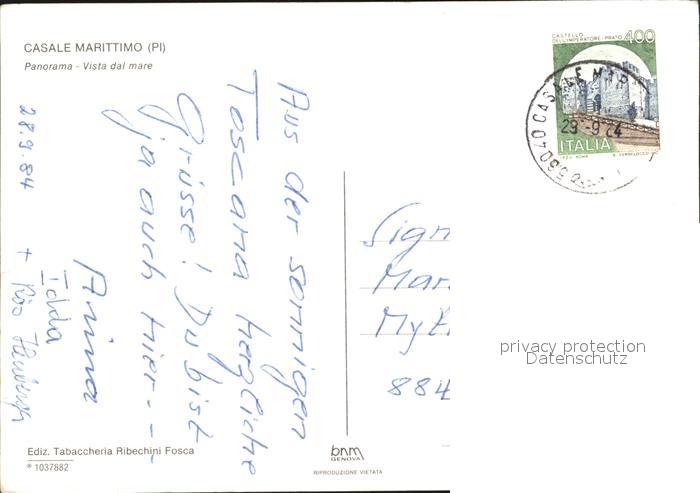 CASALE MARITTIMO (PI)
Panorama - Vista dal mare
Aus der sonnigen
Toscana herzliche
Grüsse! Du bist
ja auch hier - - -
Anina
Idda
+
28.9.84
Sign
Mar
My
884
CASTELLO
DELL'IMPERATORE - PRATO
400
ITALIA
56040 CASALE MAR
29-9 84
privacy protection
Datenschutz
Ediz. Tabaccheria Ribechini Fosca
® 1037882
bnm
GENOVA
RIPRODUZIONE VIETATA